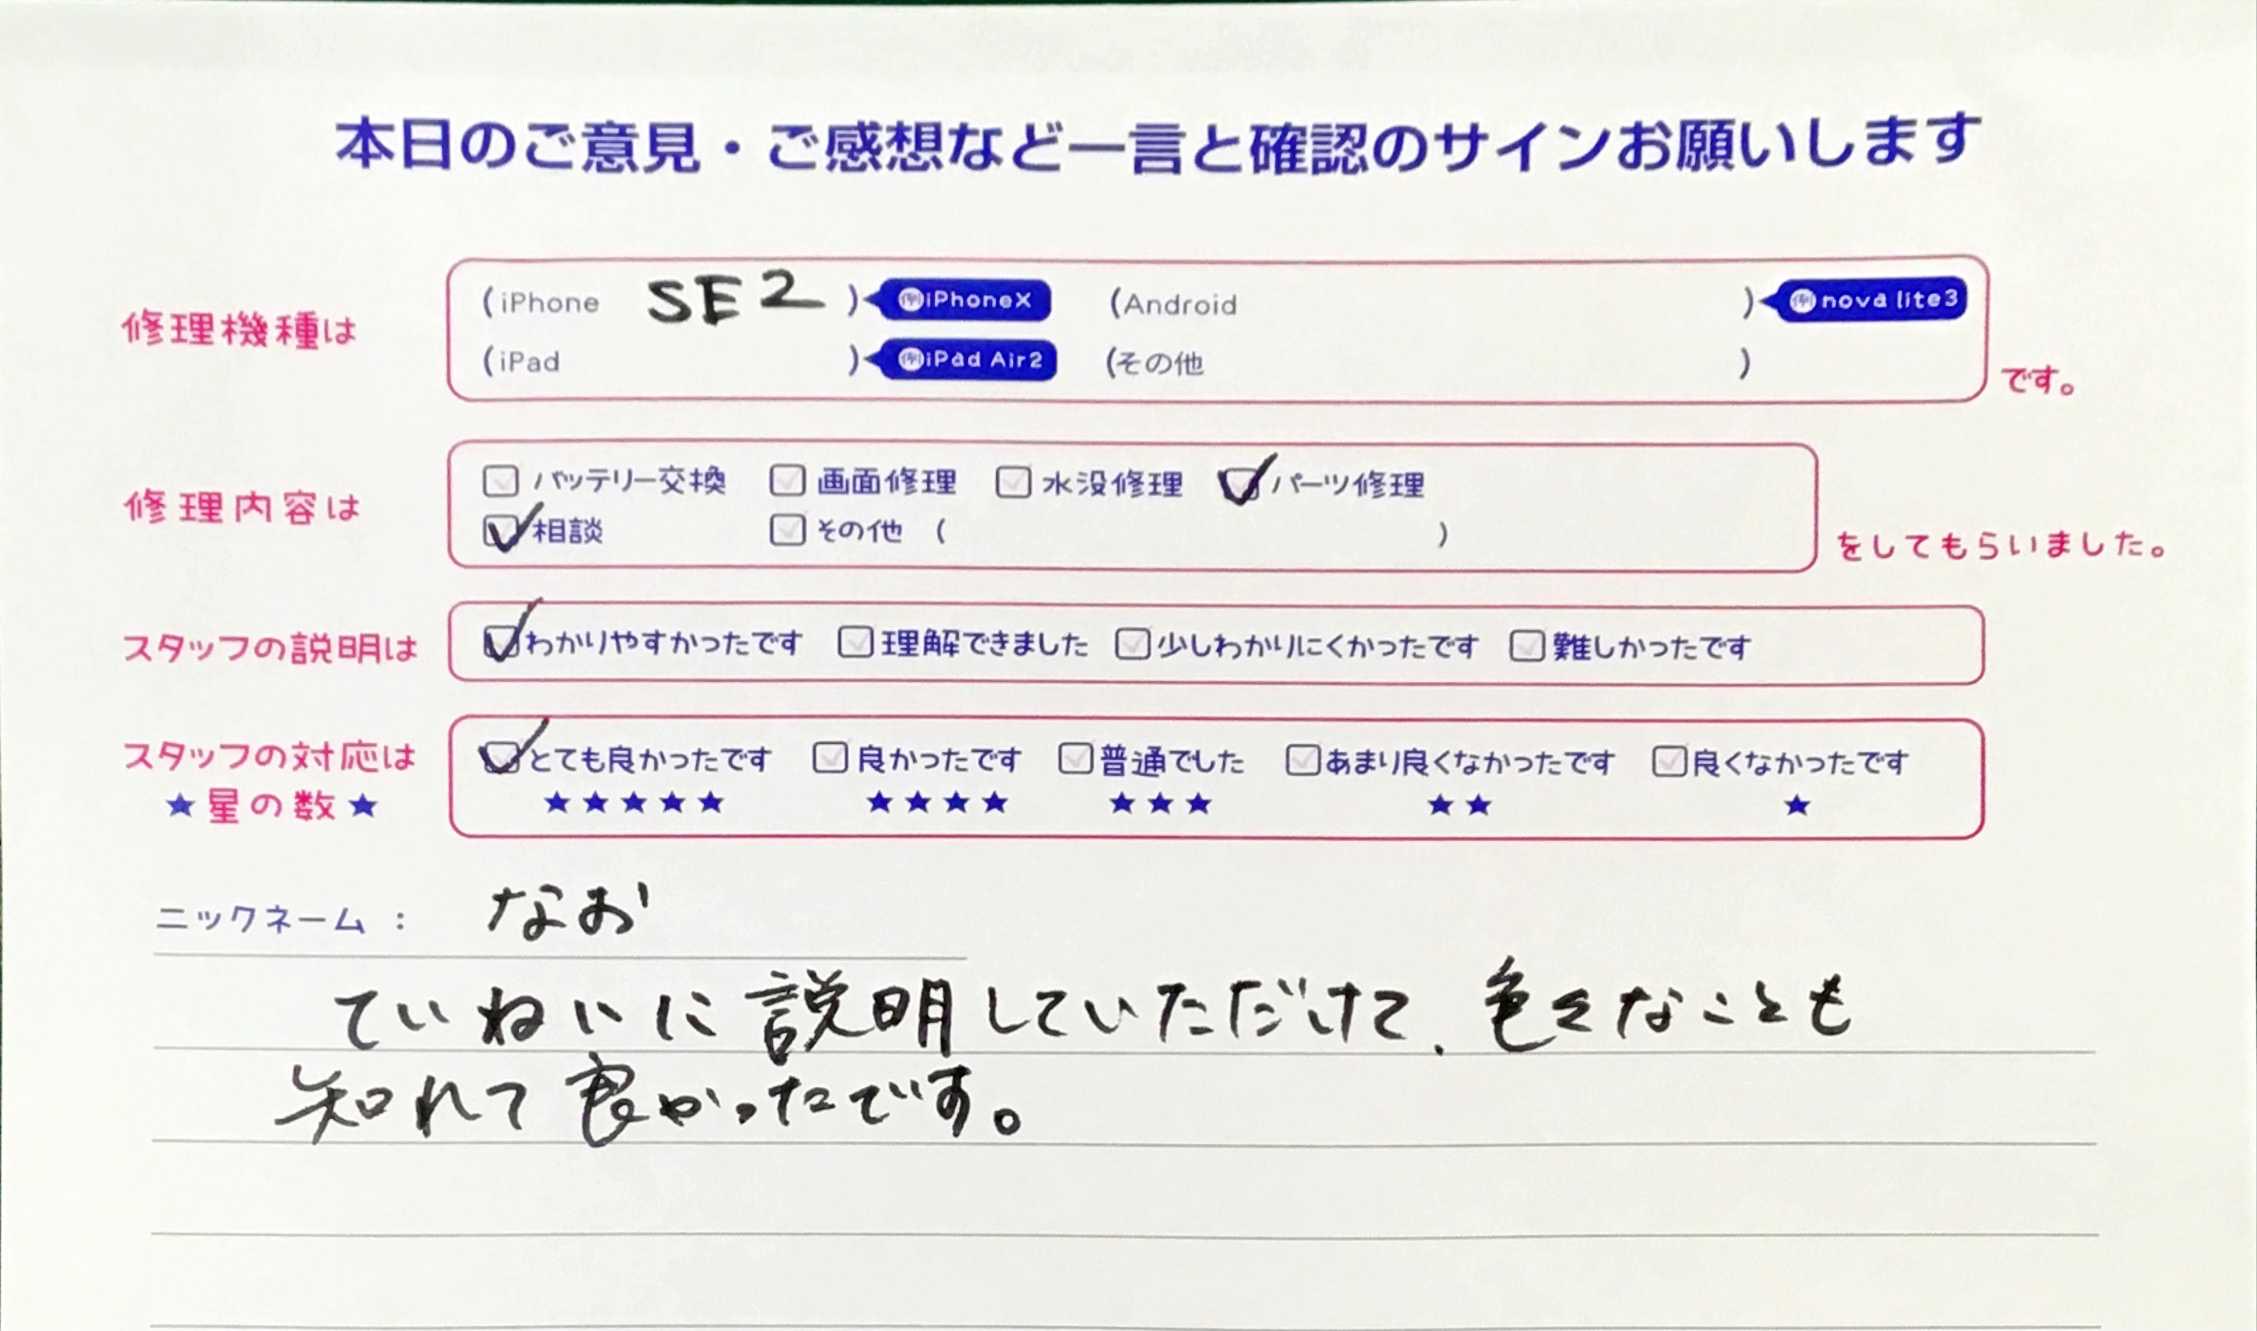 本日のご意見・ご感想など一言と確認のサインお願いします
修理機種は
(iPhone SE2 ) 例iPhoneX (Android ) 例nova lite3
(iPad ) 例iPad Air2 (その他 )
です。
修理内容は
バッテリー交換 画面修理 水没修理 パーツ修理
相談 その他 ( )
をしてもらいました。
スタッフの説明は わかりやすかったです 理解できました 少しわかりにくかったです 難しかったです
スタッフの対応は とても良かったです 良かったです 普通でした あまり良くなかったです 良くなかったです
★星の数★ ★★★★★ ★★★★ ★★★ ★★ ★
ニックネーム : なお
ていねいに説明していただけて、色々なことも
知れて良かったです。